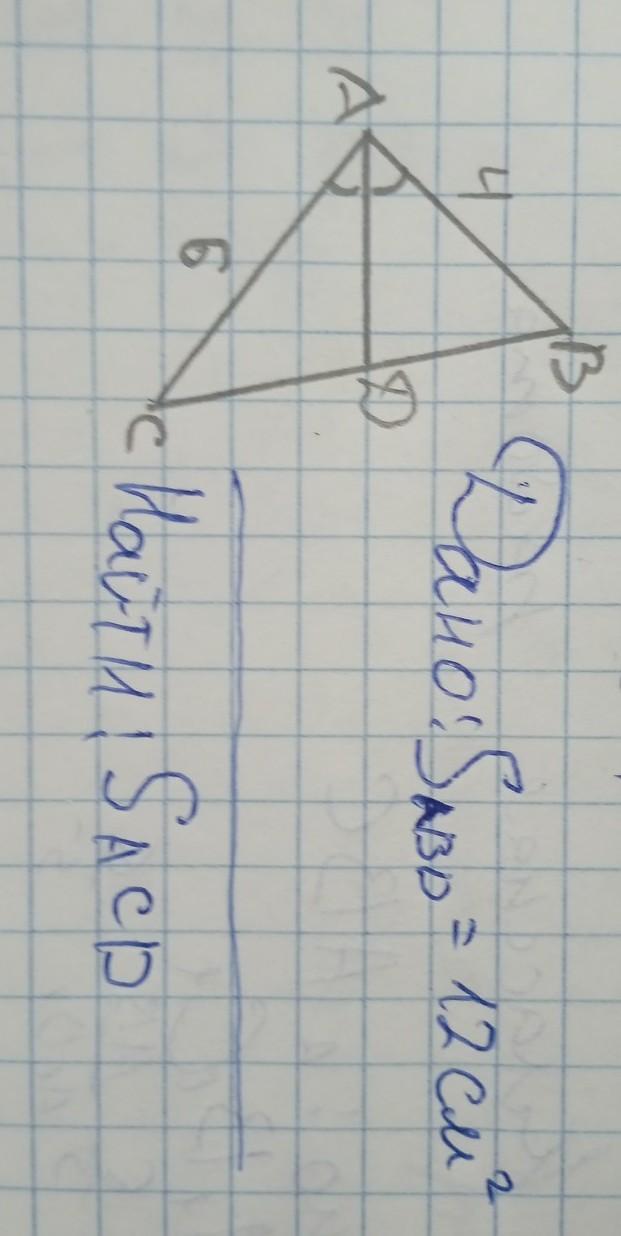 A
4
B
6
D
C
Дано: S ABD = 12 см²
Найти: S ACD